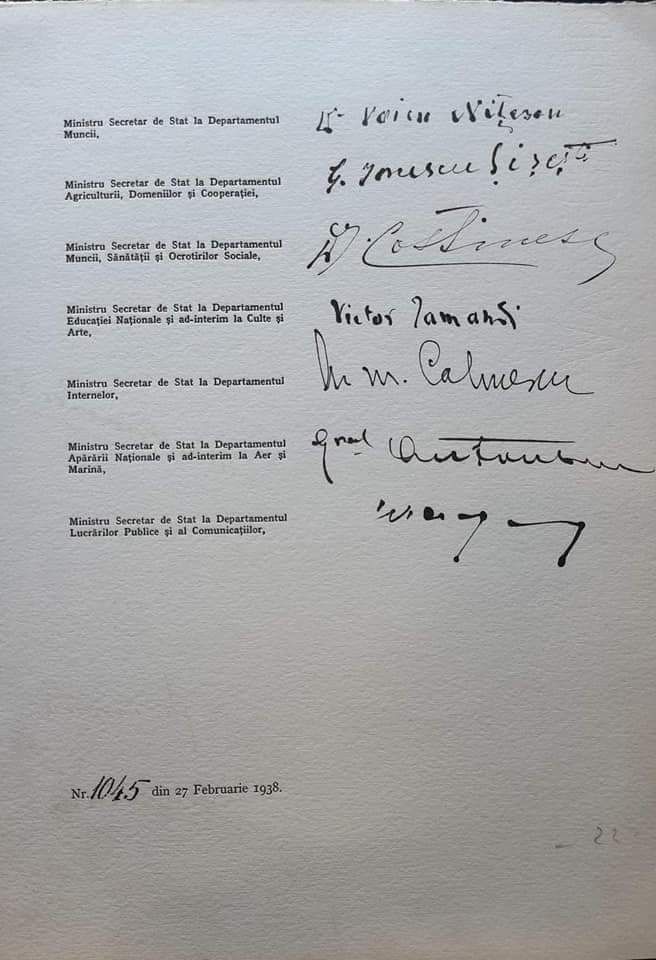 Ministru Secretar de Stat la Departamentul
Muncii,
Dr Voicu Nițescu
Ministru Secretar de Stat la Departamentul
Agriculturii, Domeniilor și Cooperației,
G. Ionescu Șișești
Ministru Secretar de Stat la Departamentul
Muncii, Sănătății și Ocrotirilor Sociale,
Dr Costinescu
Ministru Secretar de Stat la Departamentul
Educației Naționale și ad-interim la Culte și
Arte,
Victor Iamandi
Ministru Secretar de Stat la Departamentul
Internelor,
Calinescu
Ministru Secretar de Stat la Departamentul
Apărării Naționale și ad-interim la Aer și
Marină,
Gral Antonescu
Ministru Secretar de Stat la Departamentul
Lucrărilor Publice și al Comunicațiilor,
Nr. 1045 din 27 Februarie 1938.
22